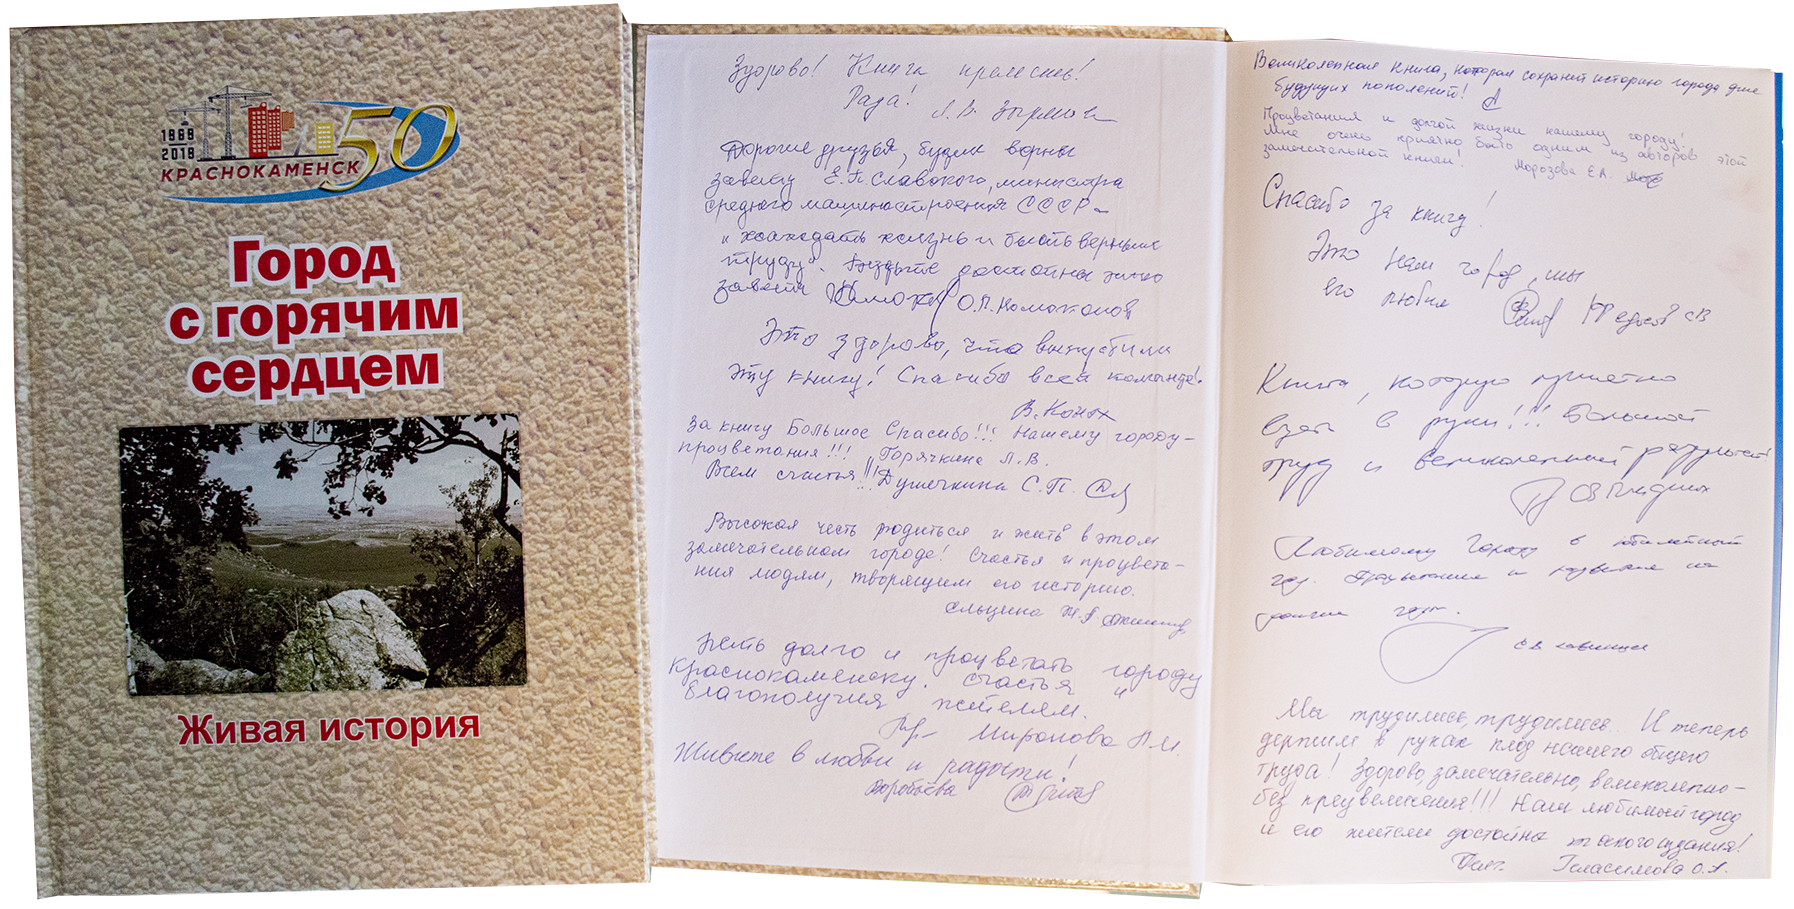 1968
2018
50
КРАСНОКАМЕНСК
Город
с горячим
сердцем
Живая история
Здорово! Книга прелесть!
Рада!
Л.В.
Дорогие друзья, будем верны
завету Е.П. Славского, министра
среднего машиностроения СССР –
жизнь и быть верным
труду". Будьте достойны этого
завета О.П. Номоконов
Это здорово, что выпустили
эту книгу! Спасибо всей команде!
В. Конох
За книгу Большое Спасибо!!! Нашему городу –
процветания!!! Горячкина Л.В.
Всем счастья!! Душечкина С.П.
Высокая честь родиться и жить в этом
замечательном городе! Счастья и процвета-
ния людям, творящим его историю.
Ельцина
Жить долго и процветать городу
Краснокаменску. Счастья и
благополучия жителям.
Миронова Н.И.
Живите в любви и радости!
Воробьёва
Великолепная книга, которая сохранит историю города для
будущих поколений!
Процветания и долгой жизни нашему городу!
Мне очень приятно быть одним из авторов этой
замечательной книги! Морозова Е.А.
Спасибо за книгу!
Это наш город, мы
его любим
Книга, которую приятно
взять в руки!!! Большой
труд и великолепный результат
Любимому городу в юбилейный
год. Процветания и развития на
долгие годы.
Мы трудились, трудились... И теперь
держим в руках плод нашего общего
труда! Здорово, замечательно, великолепно –
без преувеличения!!! Наш любимый город
и его жители достойны такого издания!
Герасимова О.А.